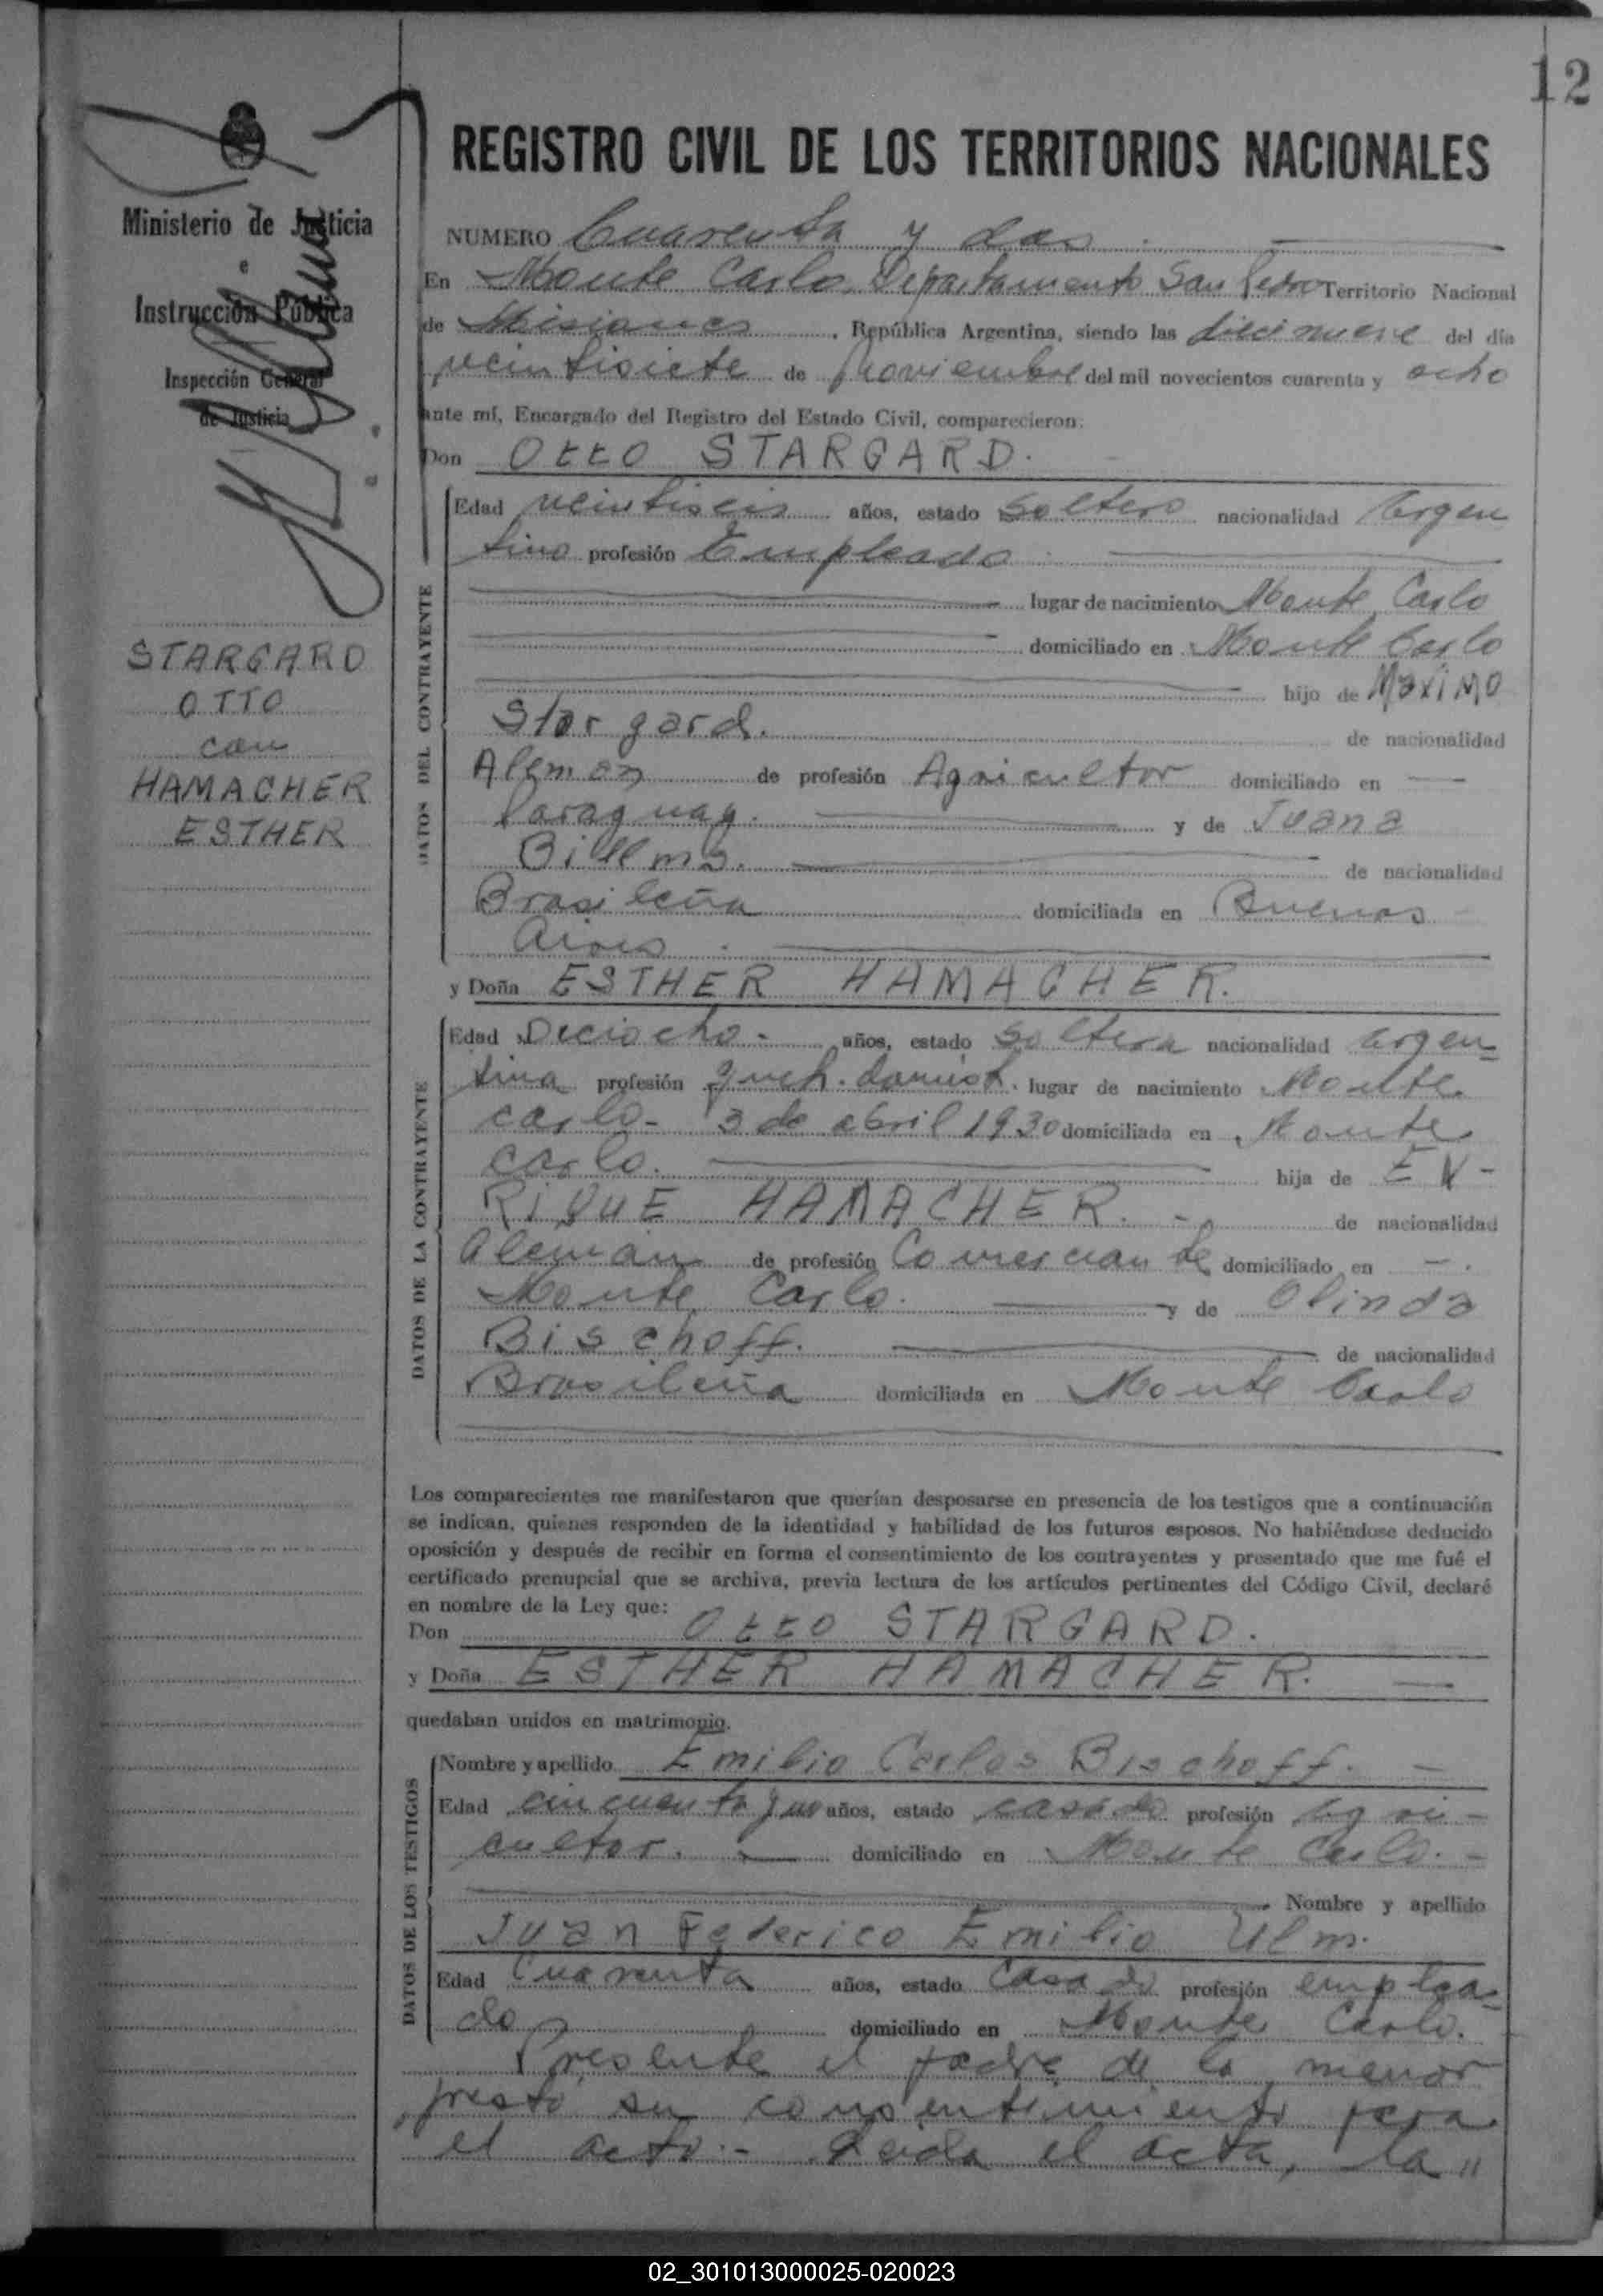 12
REGISTRO CIVIL DE LOS TERRITORIOS NACIONALES
Ministerio de Justicia
e
Instrucción Pública
Inspección General
de Justicia
STARGARD
OTTO
con
HAMACHER
ESTHER
NUMERO Cuarenta y dos.
En Monte Carlo, Departamento San Pedro Territorio Nacional
de Misiones, República Argentina, siendo las diecinueve del día
veintisiete de Noviembre del mil novecientos cuarenta y ocho
ante mí, Encargado del Registro del Estado Civil, comparecieron:
Don Otto STARGARD.
DATOS DEL CONTRAYENTE
Edad veintiseis años, estado soltero nacionalidad Argen
tino profesión Empleado
lugar de nacimiento Monte Carlo
domiciliado en Monte Carlo
hijo de MaxiMO
Stargard. de nacionalidad
Alemán de profesión Agricultor domiciliado en —
Paraguay. y de Juana
de nacionalidad
Brasileña domiciliada en Buenos
Aires.
y Doña ESTHER HAMACHER.
DATOS DE LA CONTRAYENTE
Edad Dieciocho.- años, estado soltera nacionalidad Argen-
tina profesión lugar de nacimiento Monte
carlo- 3 de abril 1930 domiciliada en Monte
carlo. hija de EN-
RIQUE HAMACHER. - de nacionalidad
alemán de profesión Comerciante domiciliado en —.
Monte Carlo. y de Olinda
Bischoff. de nacionalidad
Brasileña domiciliada en Monte Carlo
Los comparecientes me manifestaron que querían desposarse en presencia de los testigos que a continuación
se indican, quienes responden de la identidad y habilidad de los futuros esposos. No habiéndose deducido
oposición y después de recibir en forma el consentimiento de los contrayentes y presentado que me fué el
certificado prenupcial que se archiva, previa lectura de los artículos pertinentes del Código Civil, declaré
en nombre de la Ley que:
Don Otto STARGARD.
y Doña ESTHER HAMACHER. —
quedaban unidos en matrimonio.
DATOS DE LOS TESTIGOS
Nombre y apellido Emilio Carlos Bischoff. —
Edad cincuenta y uno años, estado casado profesión Agri-
cultor. — domiciliado en Monte Carlo.-
Nombre y apellido
Juan Federico Emilio Ulm.
Edad Cuarenta años, estado Casado profesión emplea-
do domiciliado en Monte Carlo.
Presente el padre de la menor
prestó su consentimiento para
el acto.- Leida el acta, la "
02_301013000025-020023